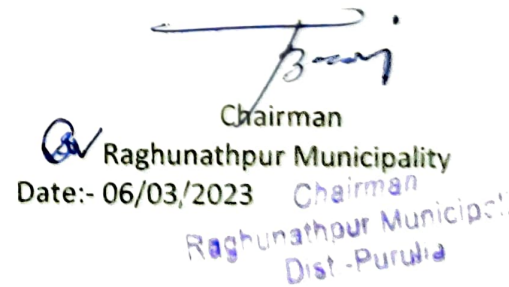 Chairman
Raghunathpur Municipality
Date:- 06/03/2023
Chairman
Raghunathpur Municipal
Dist.-Purulia